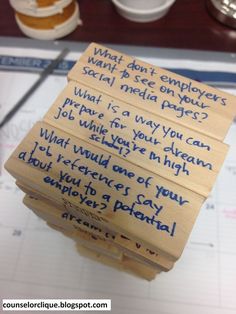 What don't employers
want to see on your
social media pages?
What is a way you can
prepare for your dream
job while you're in high
school?
What would one of your
job references say
about you to a potential
employer?
dream
counselorclique.blogspot.com